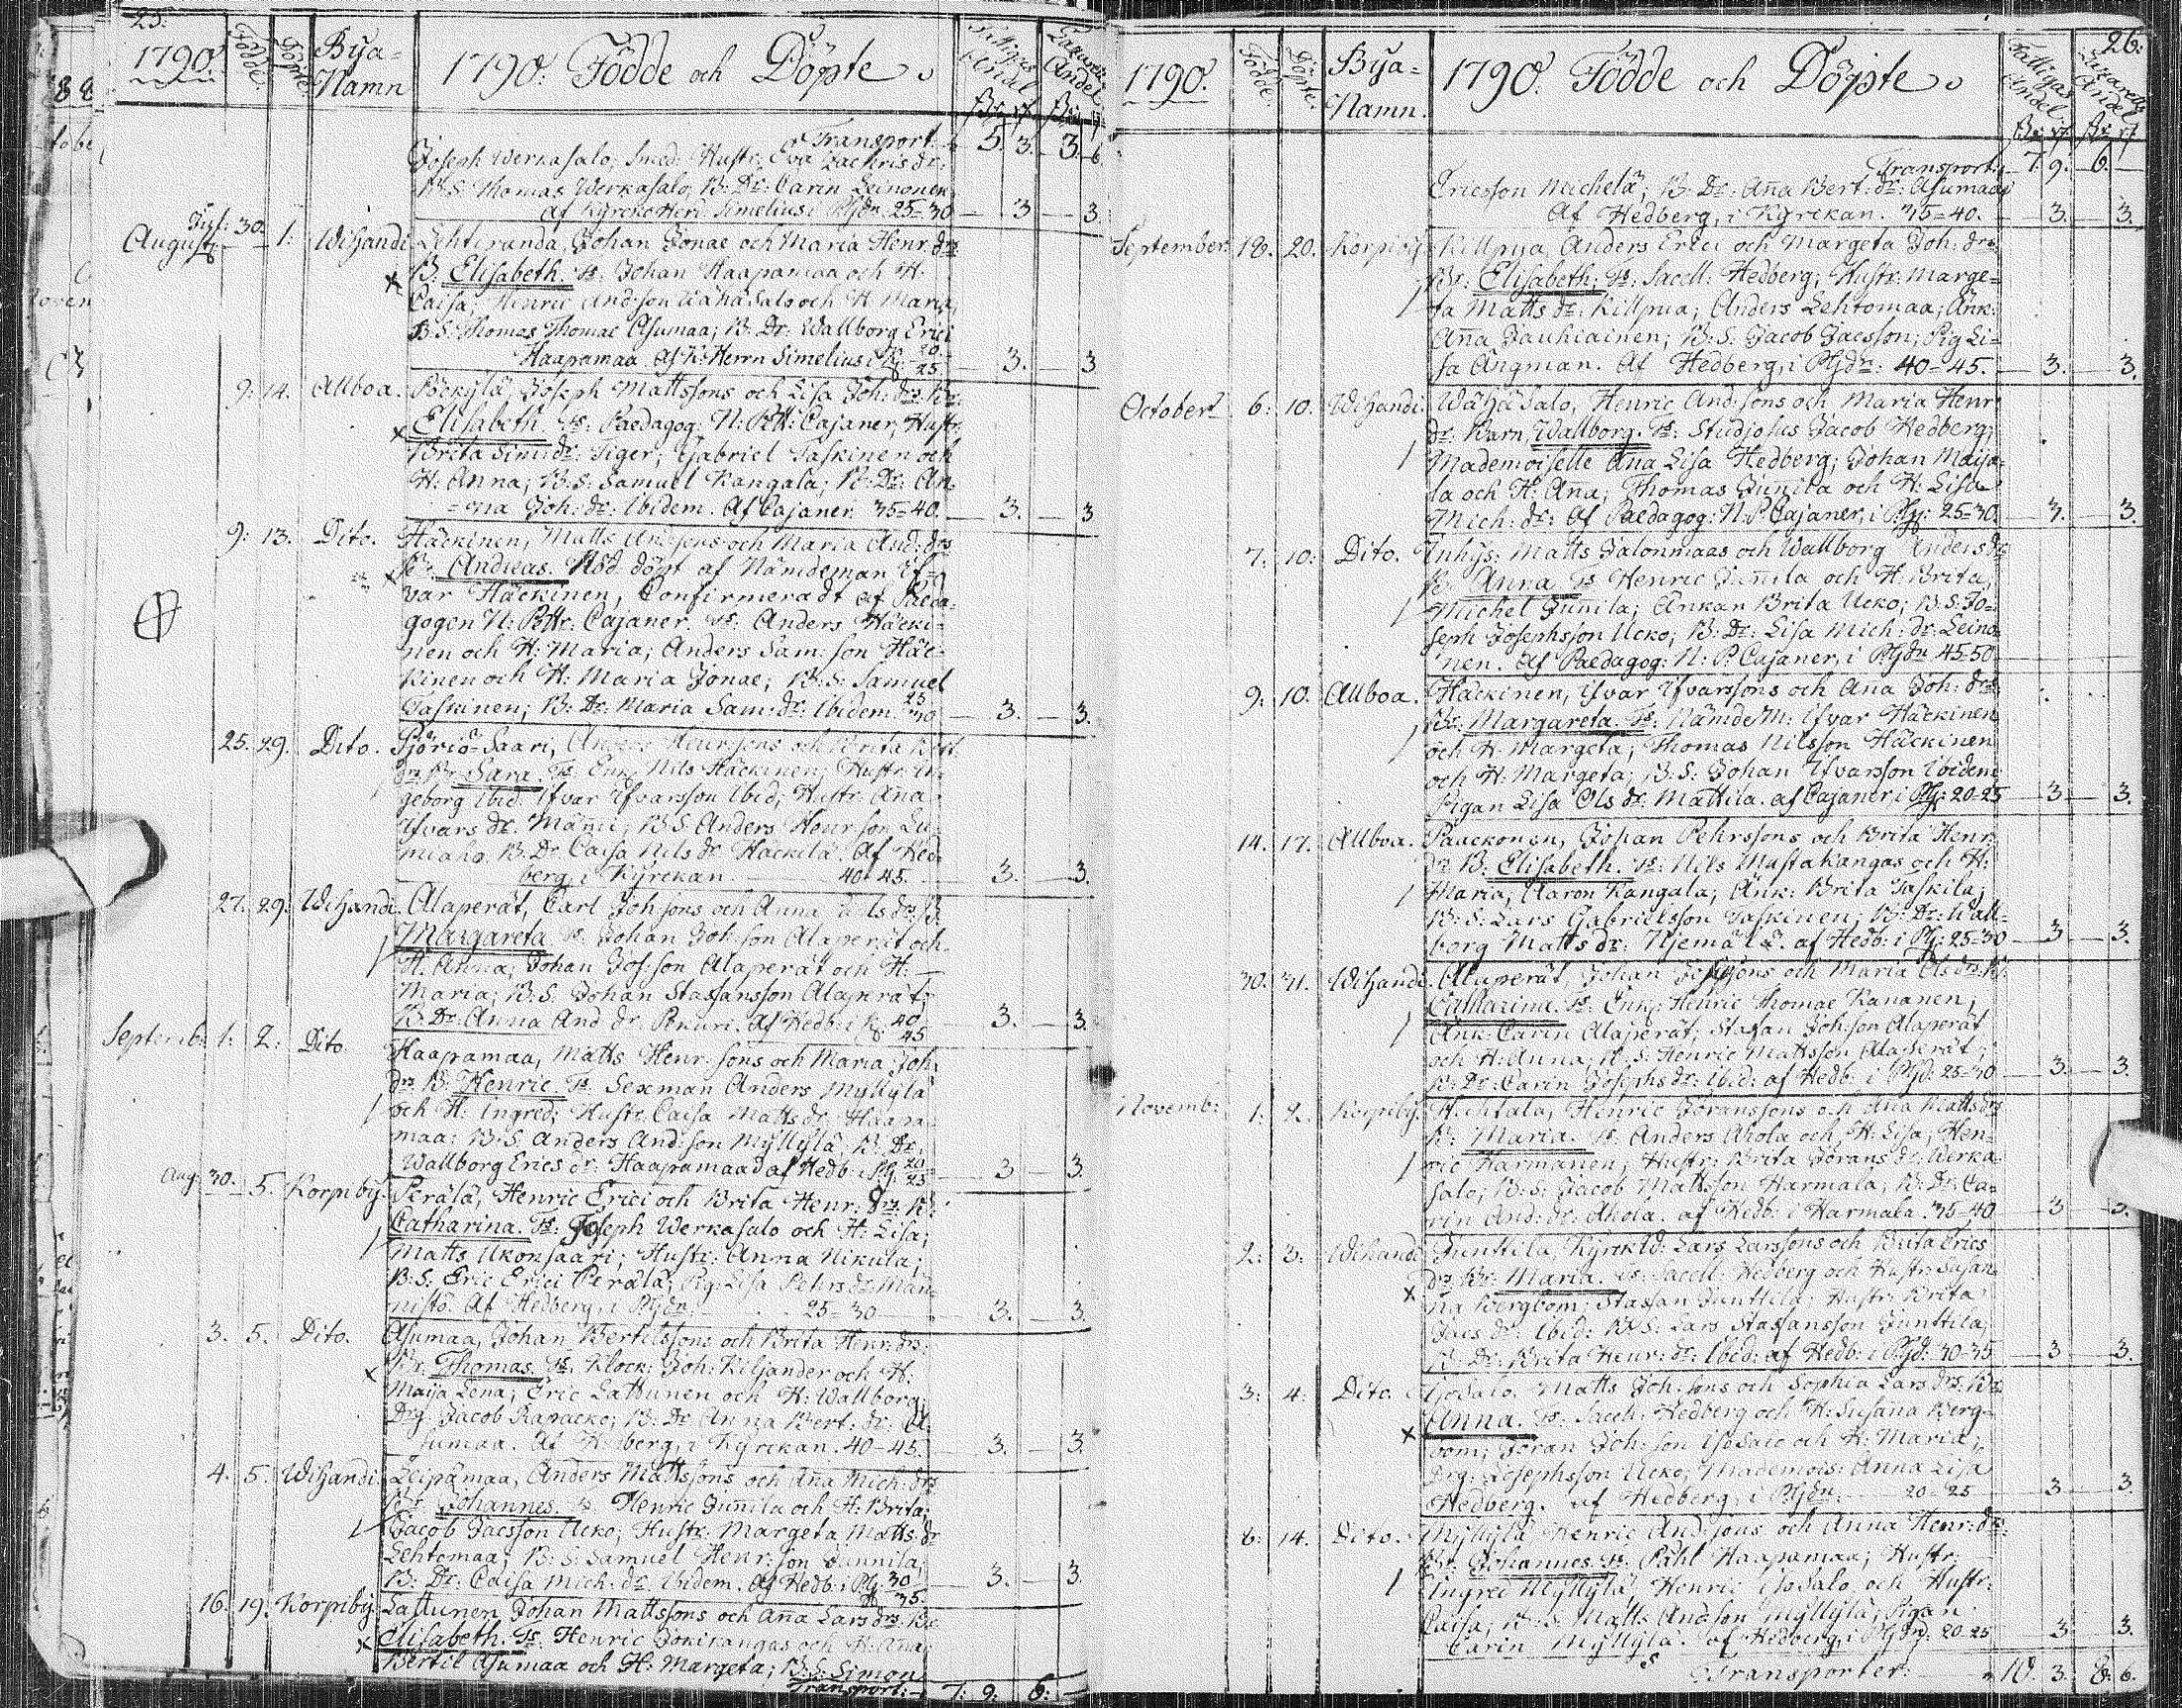 25.
1790. Födde. Döpte. Bya=Namn 1790: Födde och Döpte. Andel Andel
Transport. 5. 3. 3. 6
Joseph Werkasalo, Smed: Hustr: Eva Zachris dr:
B: S. Thomas Werkasalo, B: Dr: Carin Leinonen
af Kyrcko Herd Simelius i Pgdn. 25=30 — 3 — 3.
August: Jul: 30. 1: Wihandi Lehtiranda, Johan Jonae och Maria Henr: drs
B: Elisabeth. Ts: Johan Haapamaa och H:
Caisa, Henric And:son Wähä Salo och H. Maria,
B: S: Thomas Thomae Asumaa; B: Dr: Wallborg Erici
Haapamaa af K: Herrn Simelius i 20. 25 — 3. — 3
9: 14. Allboa. Pöckylä, Joseph Mattssons och Lisa Joh: drs Br:
Elisabeth. Ts: Paedagog: N: Pett: Cajaner, Hustr:
Brita Sim: dr: Tiger; Gabriel Taskinen och
H: Anna; B: S: Samuel Kangala; B: Dr: An
=na Joh: dr: Ibidem. Af Cajaner. 35=40. — 3. — 3
9: 13. Dito. Häckinen, Matts And:sons och Maria And: drs
Br: Andreas. Nöd döpt af Nämdeman If=
var Häckinen, Confirmeradt af Paeda=
gogen N: Pettr: Cajaner. Ts: Anders Häcki=
nen och H: Maria; Anders Sam: son Häc=
kinen och H: Maria Jonae; B: S: Samuel
Taskinen; B: Dr: Maria Sam: dr: Ibidem. 25 30 — 3. — 3.
25. 29. Dito. Saari, Anders Henr:sons och Brita
drs Br: Sara. Ts: Nils Häckinen, Hustr: In=
geborg Ibid: Ifvar Ifvarsson Ibid; Hustr: Ana
Ifvars dr: B: S: Anders Henr:son Lu=
miaho. B: Dr: Caisa Nils dr: Häckilä. Af Hed=
berg, i Kyrckan — 40=45. — 3. — 3.
27. 29: Wihandi. Alaperät, Carl Joh:sons och Anna drs B:
Margareta Ts: Johan Joh:son Alaperät och
H. Anna; Johan Jos:son Alaperät och H:
Maria; B: S. Johan Staffansson Alaperät;
B: Dr: Anna And dr: Penuri. Af Hedb: i 40 45 — 3. — 3.
Septemb: 1: 2: Dito. Haapamaa, Matts Henr: sons och Maria Joh:
drs B: Henric. Ts: Sexman Anders Myllylä
och H: Ingred; Hustr: Caisa Matts dr: Haapa=
maa: B: S. Anders And:son Myllylä, B: Dr:
Wallborg Erics dr: Haapamaa af Hedb: i Pg: 20 25 — 3 — 3.
Aug: 30. 5. Korpiby. Perälä, Henric Erici och Brita Henr: drs B:
Catharina. Ts: Joseph Werkasalo och H: Lisa;
Matts Ukonsaari; Hustr: Anna Nikula;
B: S: Eric Erici Perälä; Pig: Lisa Pehrs dr: Man=
nistö. Af Hedberg, i Pgdn. — 25=30 — 3. — 3.
3. 5. Dito. Asumaa, Johan Bertilssons och Brita Henr: drs:
Br: Thomas. Ts: Klock: Joh: Kiljander och H:
Maija Lena; Eric Lattunen och H: Wallborg;
Drg: Jacob Rapacko; B: Dr: Anna Bert: dr: A=
sumaa. Af Hedberg, i Kyrckan. 40-45. — 3. — 3.
4. 5. Wihandi Leipämaa, Anders Mattssons och Ana Mich: drs
Br: Johannes. Ts: Henric Junila och H: Brita;
Jacob Jacsson Ucko; Hustr: Margeta Matts dr:
Lehtomaa; B: S: Samuel Henr: son Junnila;
B: Dr: Caisa Mich: dr: Ibidem. Af Hedb: i Pg: 30 35. — 3. — 3.
16. 19. Korpiby. Lattunen Johan Mattssons och Ana Lars drs: Br:
Elisabeth. Ts: Henric Jonikangas och H: Ana;
Bertil Asumaa och H: Margeta; B: S: Simon
Transport: — 7: 9: 6: —
26:
1790. Födde. Döpte. Bya=Namn. 1790: Födde och Döpte. Fattigas Andel. Lazaretts Andel
Transport: 7. 9: 6. —
Ericsson Michelä; B: Dr: Ana Bert: dr: Asumaa
Af Hedberg, i Kyrckan. 35=40. — 3. — 3.
September. 18. 20. Korpiby. Killpua Anders Erici och Margeta Joh: drs
Br: Elisabeth; Ts: Sacell: Hedberg; Hustr: Marge=
ta Matts dr: Killpua; Anders Lehtomaa; Änk:
Ana Jauhiainen; B: S: Jacob Jacsson; Pig Li=
sa Ångman. Af Hedberg, i Pgdn: 40=45. — 3. — 3.
October. 6: 10. Wihandi. Wähäsalo, Henric And:sons och Maria Henr
dr: Barn, Wallborg. Ts: Studiosus Jacob Hedberg;
Mademoiselle Ana Lisa Hedberg; Johan Maija=
la och H: Ana; Thomas Junila och H: Lisa
Mich: dr: Af Paedagog: N: P: Cajaner, i Pg: 25=30. — 3. — 3.
7: 10: Dito. Inhys: Matts Jalonmaas och Wallborg Anders drs
B: Anna. Ts: Henric Junila och H: Brita,
Michel Junila; Änkan Brita Ucko; B: S: Jo=
seph Josephsson Ucko; B: Dr: Lisa Mich: dr: Leino=
nen. Af Paedagog: N: P: Cajaner, i Pgdn 45=50
9: 10. Allboa. Häckinen, Ifvar Ifvarssons och Ana Joh: drs:
Br: Margareta. Ts: Nämde M: Ifvar Häckinen
och H. Margeta; Thomas Nilsson Häckinen
och H: Margeta; B: S: Johan Ifvarsson Ibidem
Pigan Lisa Ols dr: Mattila. af Cajaner i Pg: 20=25 — 3 — 3.
14. 17. Allboa. Paackonen, Johan Pehrssons och Brita Henr:
drs B: Elisabeth. Ts: Nils Mustakangas och H:
Maria, Aaron Kangala; Änk: Brita Taskila;
B: S: Lars Gabrielsson Taskinen; B: Dr: Wall=
borg Matts dr: Njemälä. af Hedb: i Pg: 25=30 — 3 — 3.
30. 31. Wihandi. Alaperät, Johan sons och Maria Ols drs B:
Catharina. Ts: Henric Thomae Kananen;
Änk: Carin Alaperät; Stafan Joh:son Alaperät
och H: Anna; B: S: Henric Mattsson Alaperät;
B: Dr: Carin Josephs dr: Ibid: af Hedb: i Pgd: 25=30 — 3 — 3.
Novemb: 1: 2. Korpiby. Huhtala, Henric Göranssons och Ana Matts drs
B: Maria. Ts: Anders Ahola och H: Lisa; Hen=
ric Harmanen; Hustr: Brita Görans dr: Werka=
salo; B: S: Jacob Mattsson Harmala; B: Dr: Ca=
rin And: dr: Ahola. af Hedb: i Harmala. 35=40 — 3 — 3.
2: 3: Wihandi Junttila, Kyrckvd: Lars Larssons och Brita Erics
drs Br: Maria. Ts: Sacell: Hedberg och Hustr: Susan=
na Bergbom; Staffan Junttila; Hustr: Brita
Jacs dr: Ibid: B: S: Lars Stafansson Junttila;
B: Dr: Brita Henr: dr: Ibid: af Hedb: i Pgd: 30=35 — 3 — 3.
3: 4: Dito. Isosalo. Matts Joh: sons och Sophia Lars drs: Br:
Anna. Ts: Sacell: Hedberg och H: Susana Berg=
bom; Göran Joh:son Isosalo och H: Maria;
Drg: Josephsson Ucko; Mademois: Anna Lisa
Hedberg. af Hedberg, i Pgdn. — 20=25 — 3 — 3.
8: 14. Dito. Myllylä, Henric And:sons och Anna Henr: drs:
Br: Johannes. Ts: Påhl Haapamaa; Hustr:
Ingred Myllylä; Henric Isosalo och Hustr:
Caisa; B: S: Matts And:son Myllylä; Pigan
Carin Myllylä. af Hedberg, i Pgdn: 20=25 — 3 — 3.
Transporter: 10. 3. 8. 6.